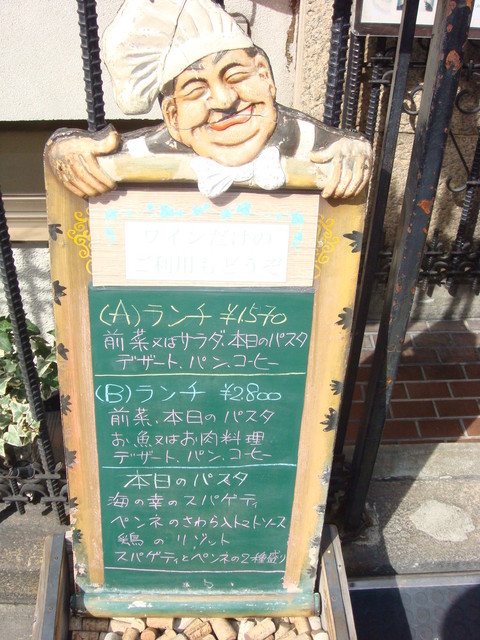 ワインだけの
ご利用もどうぞ
(A)ランチ ¥1570
前菜又はサラダ、本日のパスタ
デザート、パン、コーヒー
(B)ランチ ¥2800
前菜、本日のパスタ
お魚又はお肉料理
デザート、パン、コーヒー
本日のパスタ
海の幸のスパゲティ
ペンネのさわら入トマトソース
鶏のリゾット
スパゲティとペンネの2種盛り